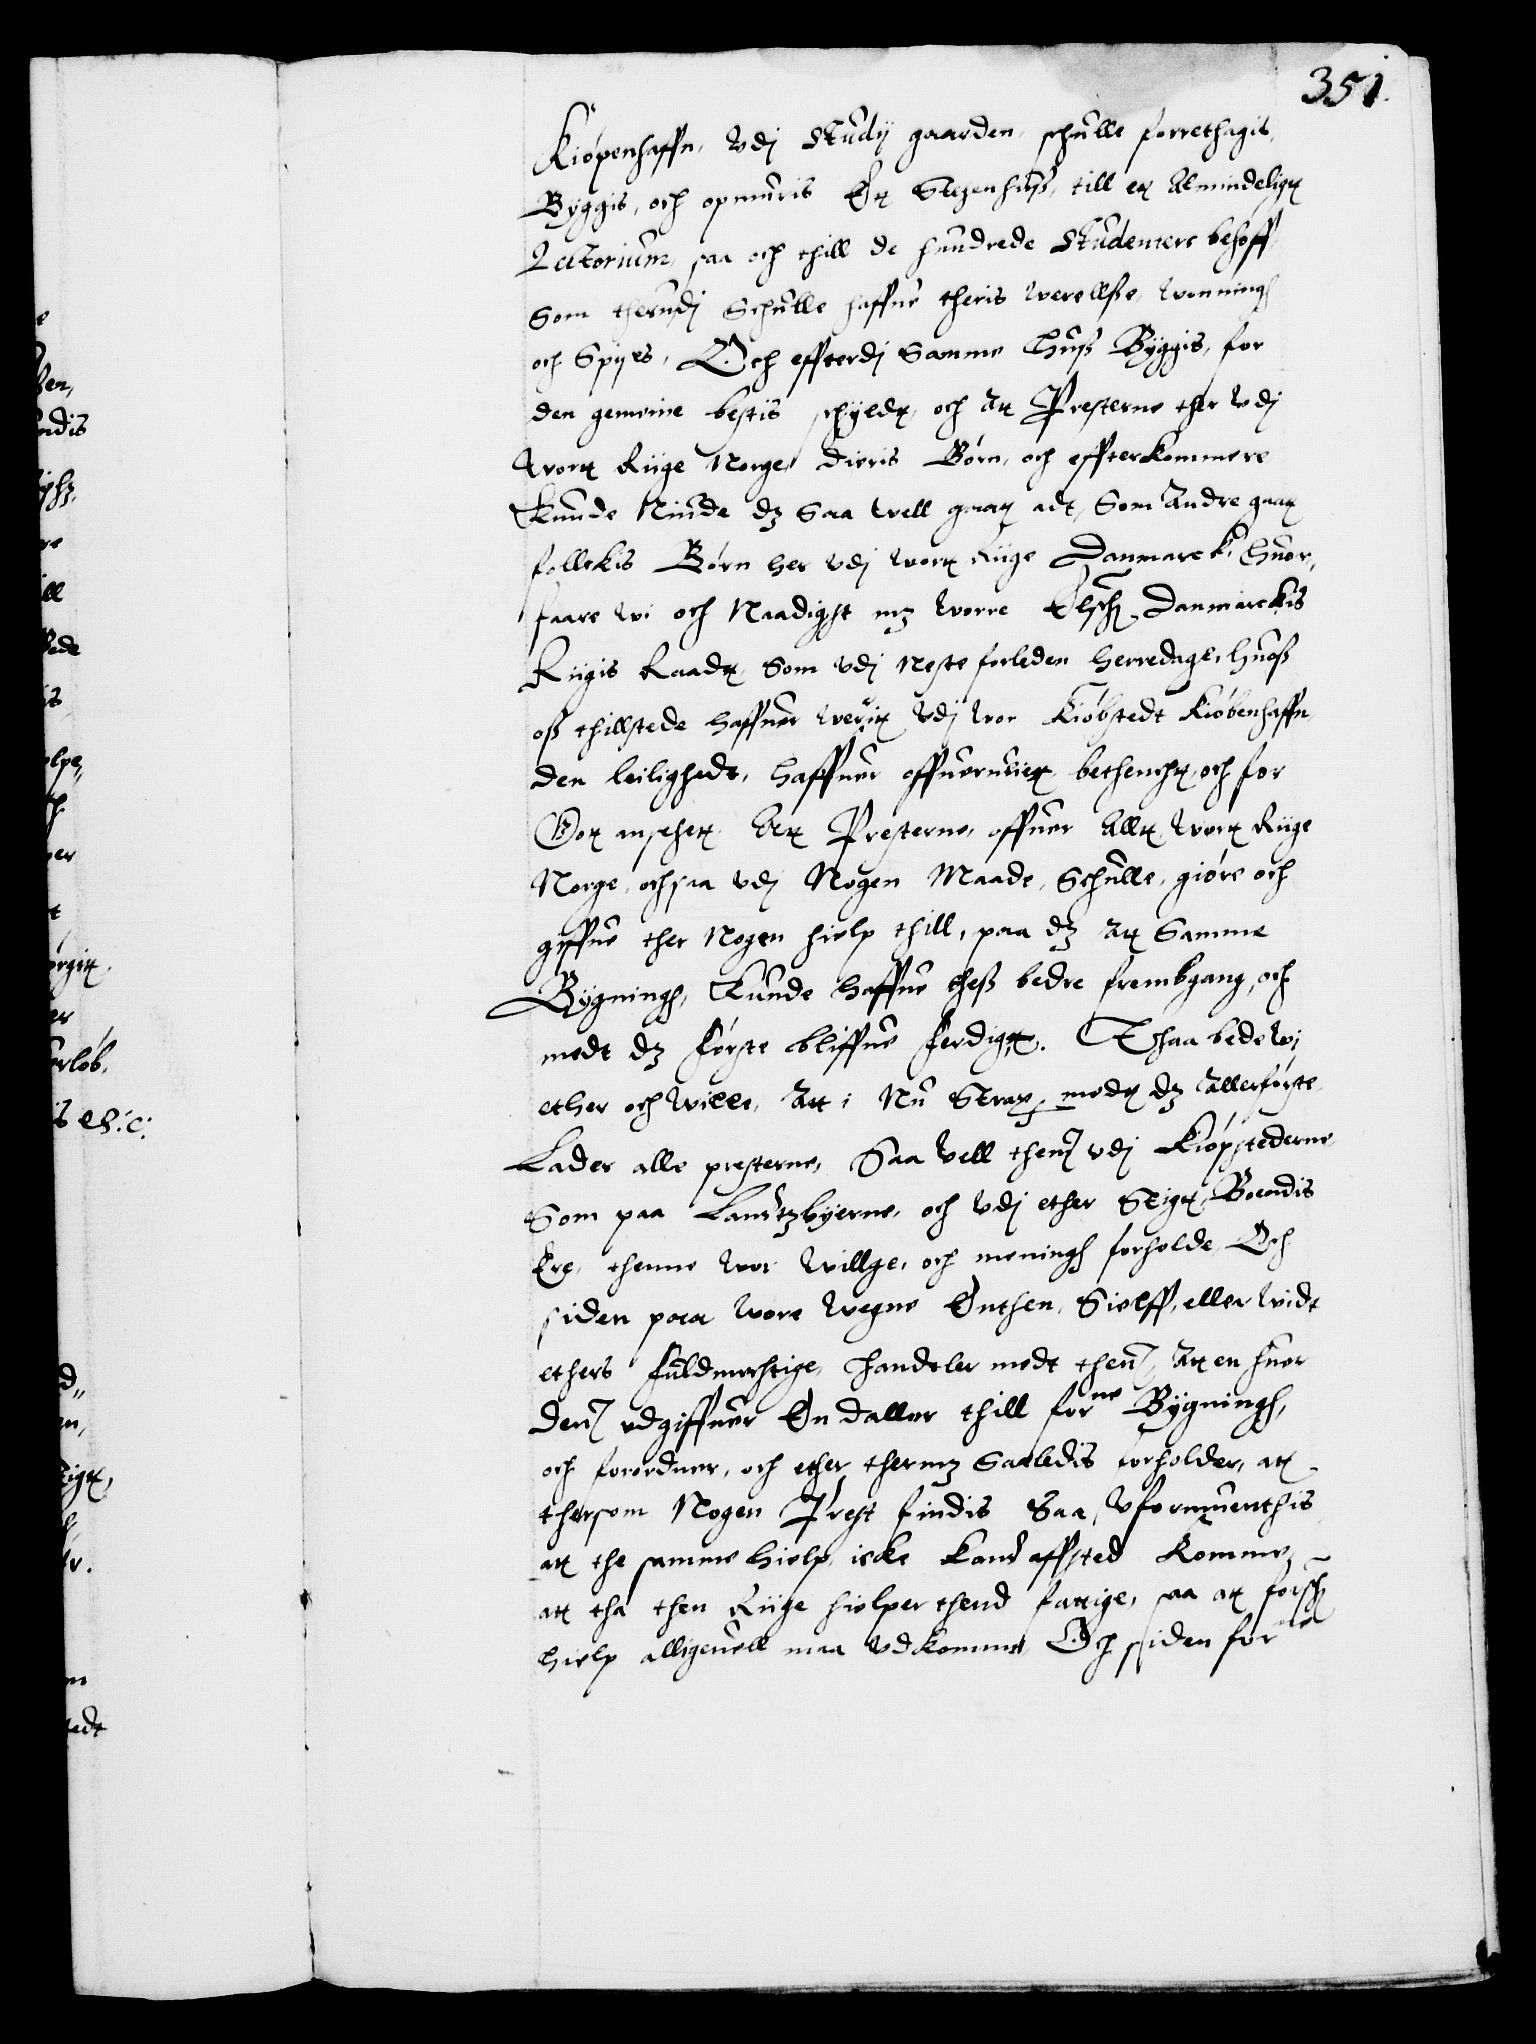 351.
Kiøpenhaffn, vdj Studij gaarden, schulle forrethagis,
Byggis, och opmuris Et Steenhuß, till et Almindeligt
Lectorium, saa och thill de hundrede Studenters behoff
Som therudj Schulle haffue theris werellße, wonningh
och Spijes, Och effterdj Samme Huß Byggis, for
den gemeine bestis schyldt, och at Presterne ther vdj
wort Riige Norge, dieris Børn, och effterkommere
Kunde Niude dz Saa well gaat adt, Som Andre gaat
folkis Børn her vdj wort Riige Danmarck, huor,,
faare wi och Naadigst mz worre Elsch. Danmarckis
Riigis Raadt, Som vdj Neste forleden Herredage, hoeß
oß thillstede haffuer werit vdj wor Kiøbstedt Kiøbenhaffn,
den leilighedt, haffuer offuerueiet, bethencht, och for
Got ansehett At Presterne, offuer Alt wort Riige
Norge, ochsaa vdj Nogen Maade, Schulle, giøre och
giffue ther Nogen hielp thill, paa dz at Samme
Bygningh, Kunde haffue theß bedre frembgang, och
medt dz Første bliffue ferdigt. Thaa bede wi
ether och wille, At i Nu Strax medt dz Allerførste
Lader alle presterne, Saa vell them vdj Kiøpstederne
Som paa Landtzbyerne, och vdj ether Stigt, Boendis
Ere, thenne wor willge, och meningh forholde, Och
siden paa wore wegne Enthen, Sielff, eller widt
ethers fuldmechtige, handtler medt them, At en huer
dem vdgiffuer En daller thill forne Bygningh,
och forordner, och ether thermz Saaledis forholder, at
thersom Nogen Prest findis Saa vformuenthis
at the samme hielp icke kand affsted komme,
at tha then Riige hielper thend fattige, saa at forsch.
hielp alligeuell maa vdkomme, Och siden forne